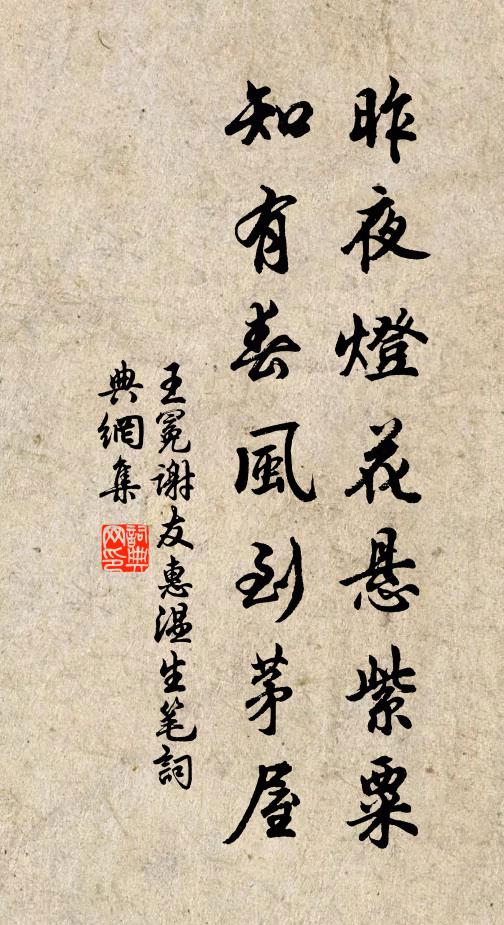 昨夜燈花悬紫粟
知有春風到茅屋
王冕谢友惠温生笔詞
典網集
詞典網印